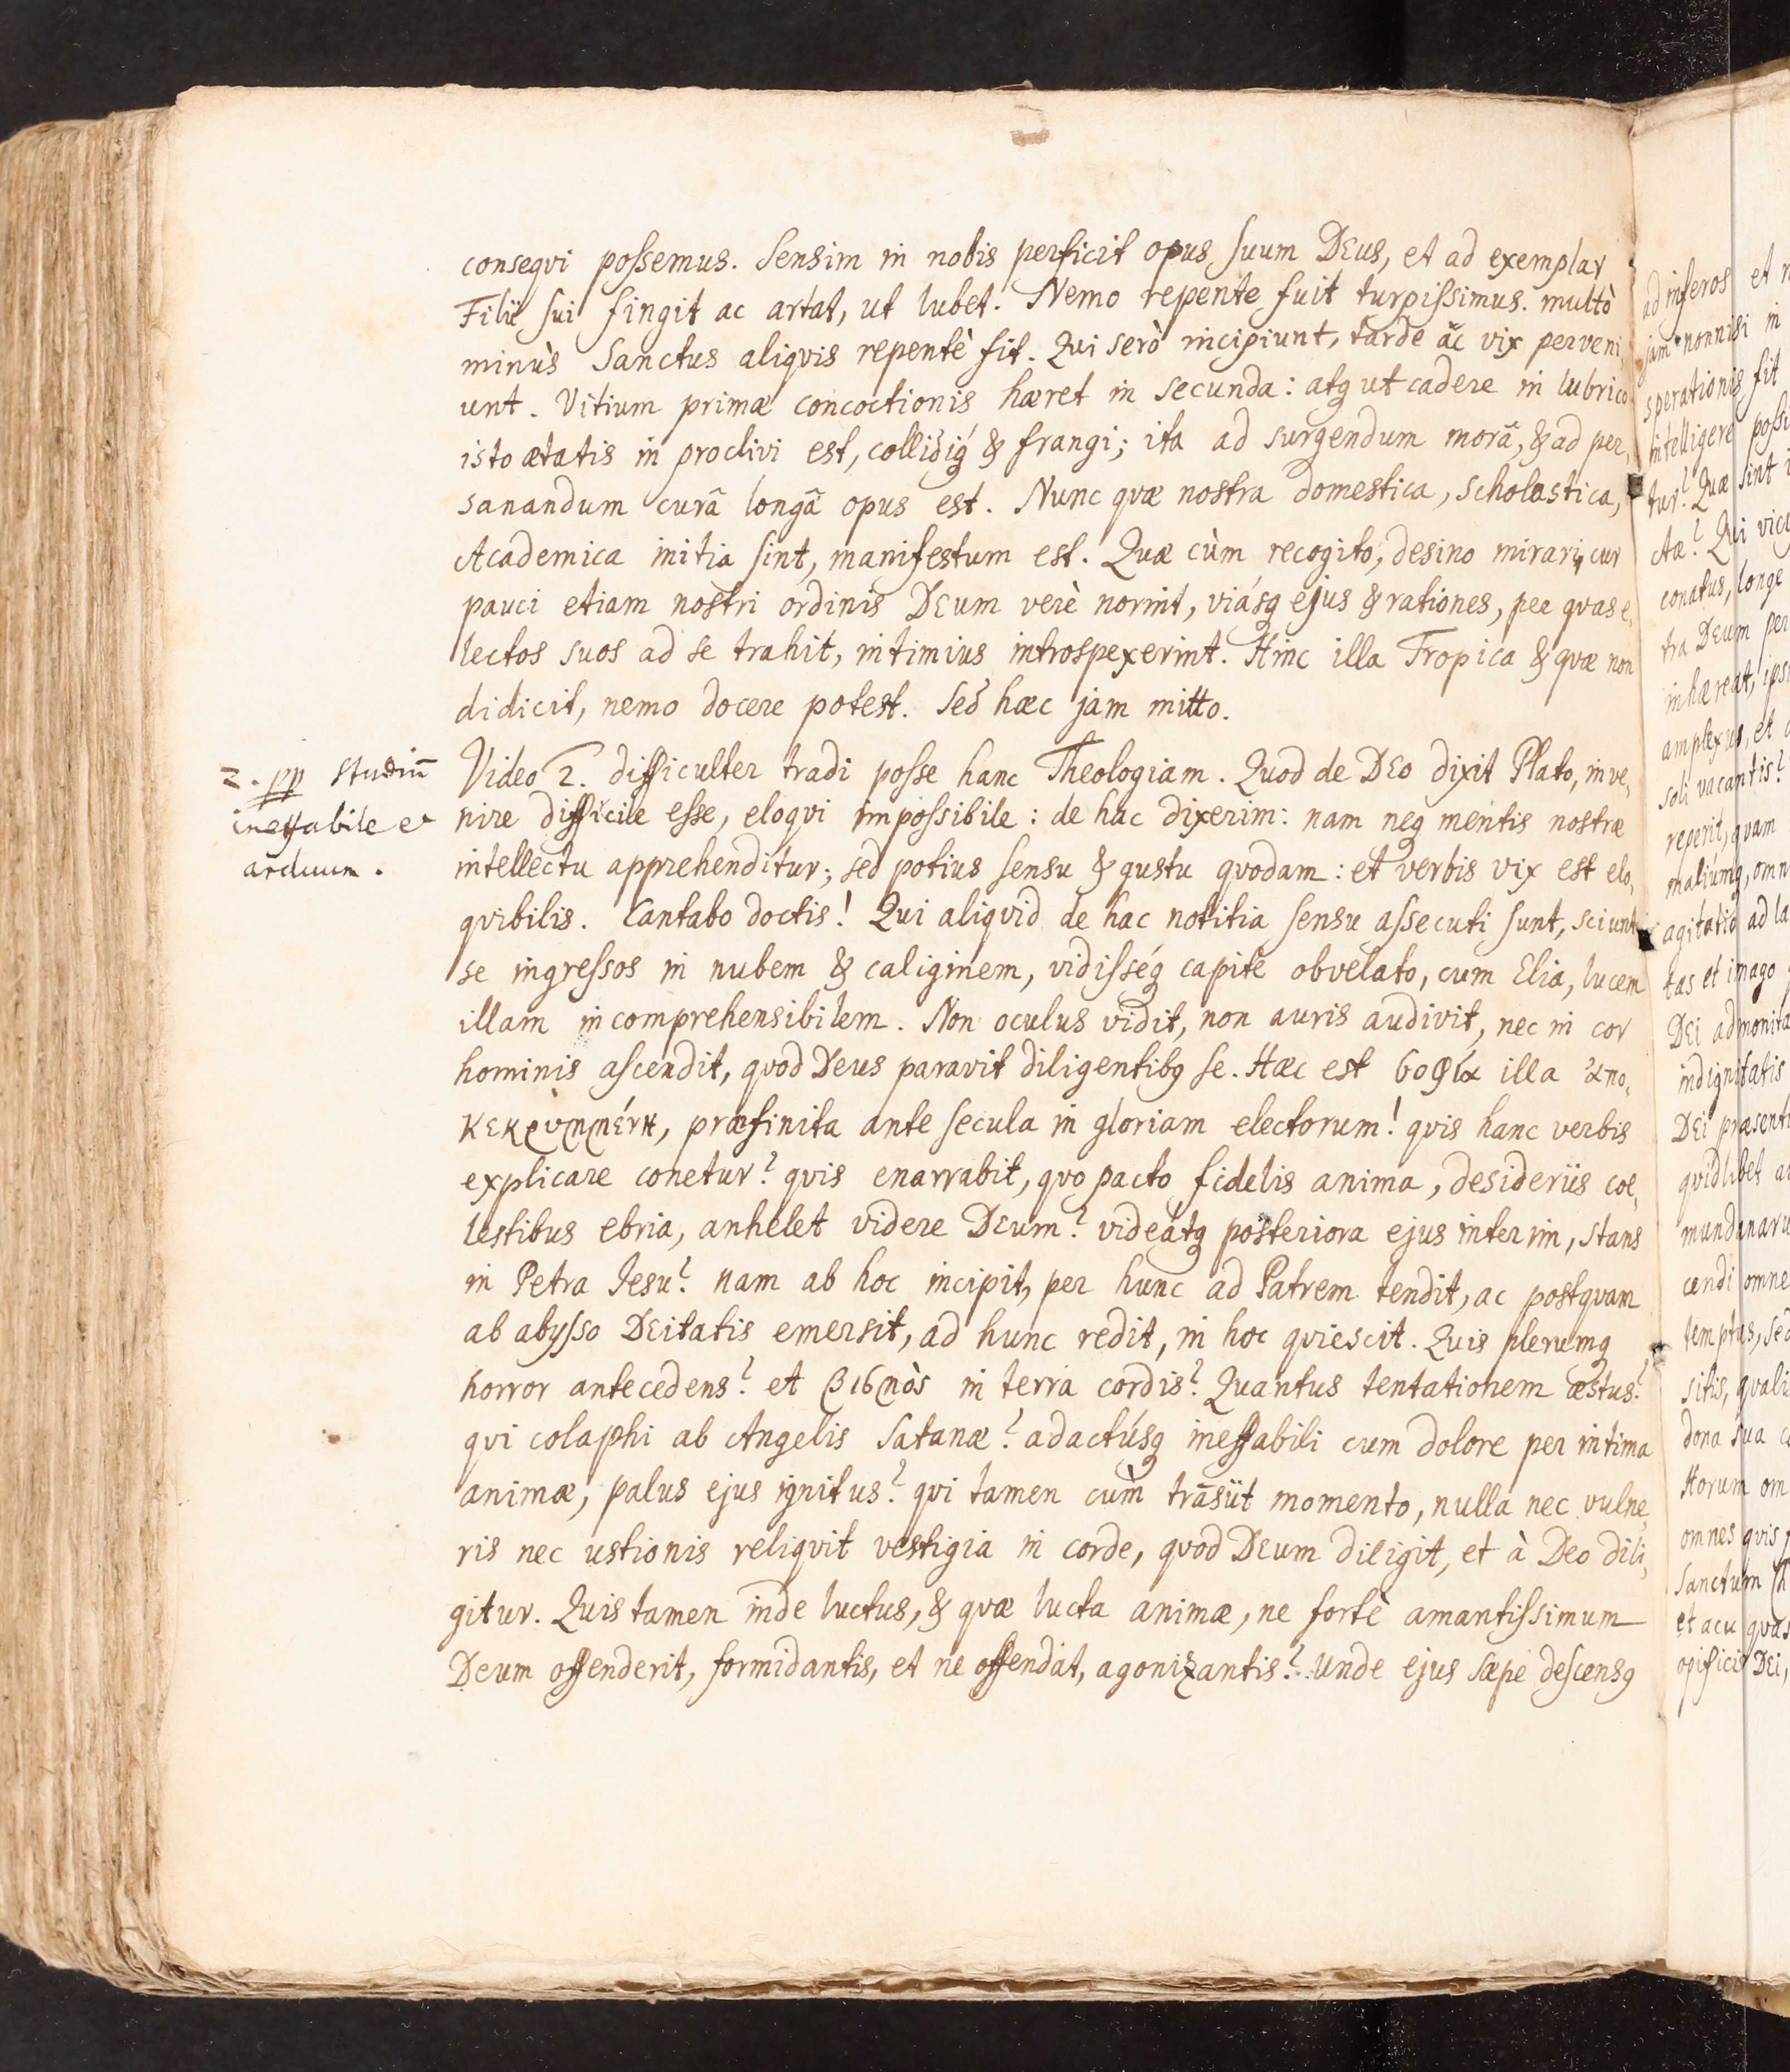 conseqvi possemus. Sensim in nobis perficit opus suum DEus, et ad exemplar
Filii sui fingit ac artat, ut lubet. Nemo repente fuit turpissimus. multò
minùs Sanctus aliqvis repentè fit. Qui serò incipiunt, tarde ac vix perveni,
unt. Vitium primæ concoctionis hæret in secunda: atq ut cadere in lubrico
isto ætatis in proclivi est, collidiq́ & frangi; ita ad surgendum morâ, & ad per,
sanandum curâ longâ opus est. Nunc qvæ nostra domestica, scholastica,
Academica initia sint, manifestum est. Quæ cùm recogito, desino mirari, cur
pauci etiam nostri ordinis DEum verè norint, viásq ejus & rationes, per qvas e,
lectos suos ad se trahit, intimius introspexerint. Hinc illa Tropica & qvæ non
didicit, nemo docere potest. Sed hæc jam mitto.
2. pp studiū
ineffabile et
arduum.
Video 2. difficulter tradi posse hanc Theologiam. Quod de DEo dixit Plato, inve,
nire difficile esse, eloqvi impossibile: de hac dixerim: nam neq mentis nostræ
intellectu apprehenditur; sed potius sensu & gustu qvodam: et verbis vix est elo,
qvibilis. Cantabo doctis! Qui aliqvid de hac notitia sensu assecuti sunt, sciunt
se ingressos in nubem & caliginem, vidisséq capite obvelato, cum Elia, lucem
illam incomprehensibilem. Non oculus vidit, non auris audivit, nec in cor
hominis ascendit, qvod Deus paravit diligentibq se. Hæc est σοφία illa ἀπο,
κεκρὺμμένη, præfinita ante secula in gloriam electorum! qvis hanc verbis
explicare conetur? qvis enarrabit, qvo pacto fidelis anima, desideriis coe,
lestibus ebria, anhelet videre DEum? videátq posteriora ejus interim, stans
in Petra Iesu? nam ab hoc incipit, per hunc ad Patrem tendit, ac postqvam
ab abysso DEitatis emersit, ad hunc redit, in hoc qviescit. Quis plerumq
horror antecedens? et σισμὸς in terra cordis? Quantus tentationem æstus?
qvi colaphi ab Angelis Satanæ? adactúsq ineffabili cum dolore per intima
animæ, palus ejus ignitus? qvi tamen cùm trāsiit momento, nulla nec vulne,
ris nec ustionis reliqvit vestigia in corde, qvod DEum diligit, et à Deo dili,
gitur. Quis tamen inde luctus, & qvæ lucta animæ, ne fortè amantissimum
Deum offenderit, formidantis, et ne offendat, agonizantis? Unde ejus sæpe descensq
ad inferos et
jam nonnisi in
sperationis fit
intelligere possi
tur? Quæ sint
ctæ? Qui vic
conatus, longe
tra DEum per
inhæreat, ips
amplexus, et
soli vacantis?
reperit, qvam
maliúmq, omn
agitatio ad la
tas et imago
DEi admonita
indignitatis
DEi præsenti
qvidlibet a
mundanaru
cendi omne
temptus, sed
sitis, qvali
dona sua c
Horum om
omnes qvis
Sanctum
et acu qvas
opificis DEi,